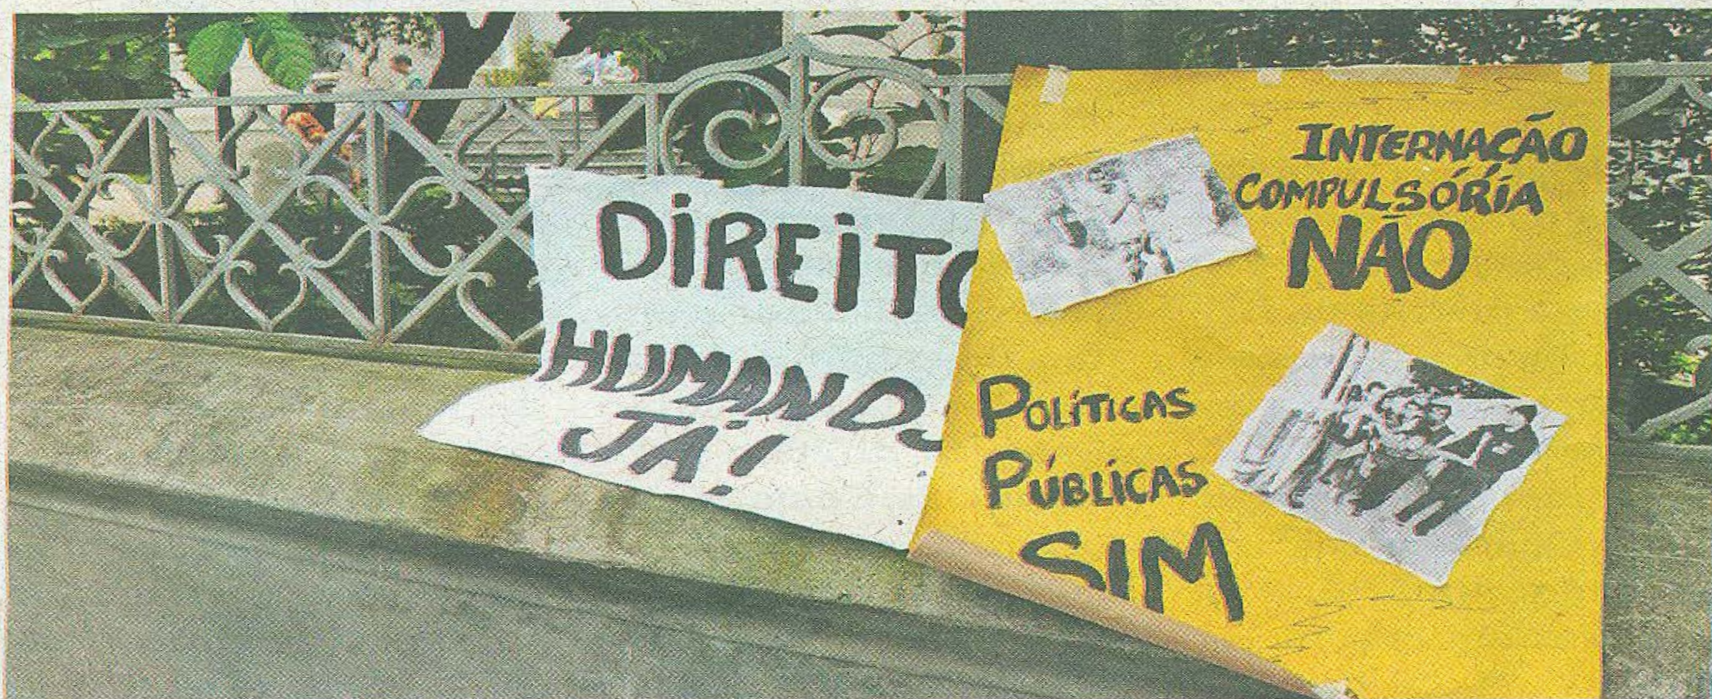 DIREITO
HUMANOS
JÁ!
INTERNAÇÃO
COMPULSÓRIA
NÃO
POLÍTICAS
PÚBLICAS
SIM